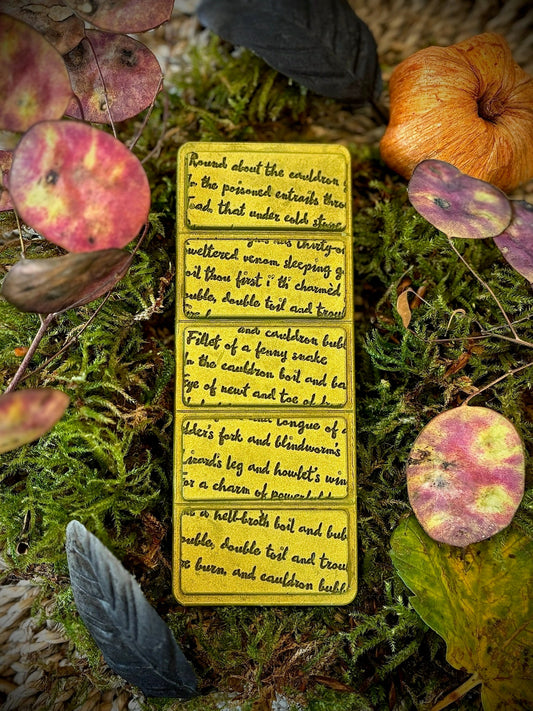 Round about the cauldron
In the poisoned entrails thro
Toad, that under cold
thirty-
weltered venom sleeping g
oil thou first i' th' charmèd
uble, double toil and trou
and cauldron bub
Fillet of a fenny snake
In the cauldron boil and ba
Eye of newt and toe of
tongue of
dder's fork and blindworm's
Lizard's leg and howlet's win
or a charm of powerful
a hell-broth boil and bub
ouble, double toil and trou
re burn, and cauldron bubb